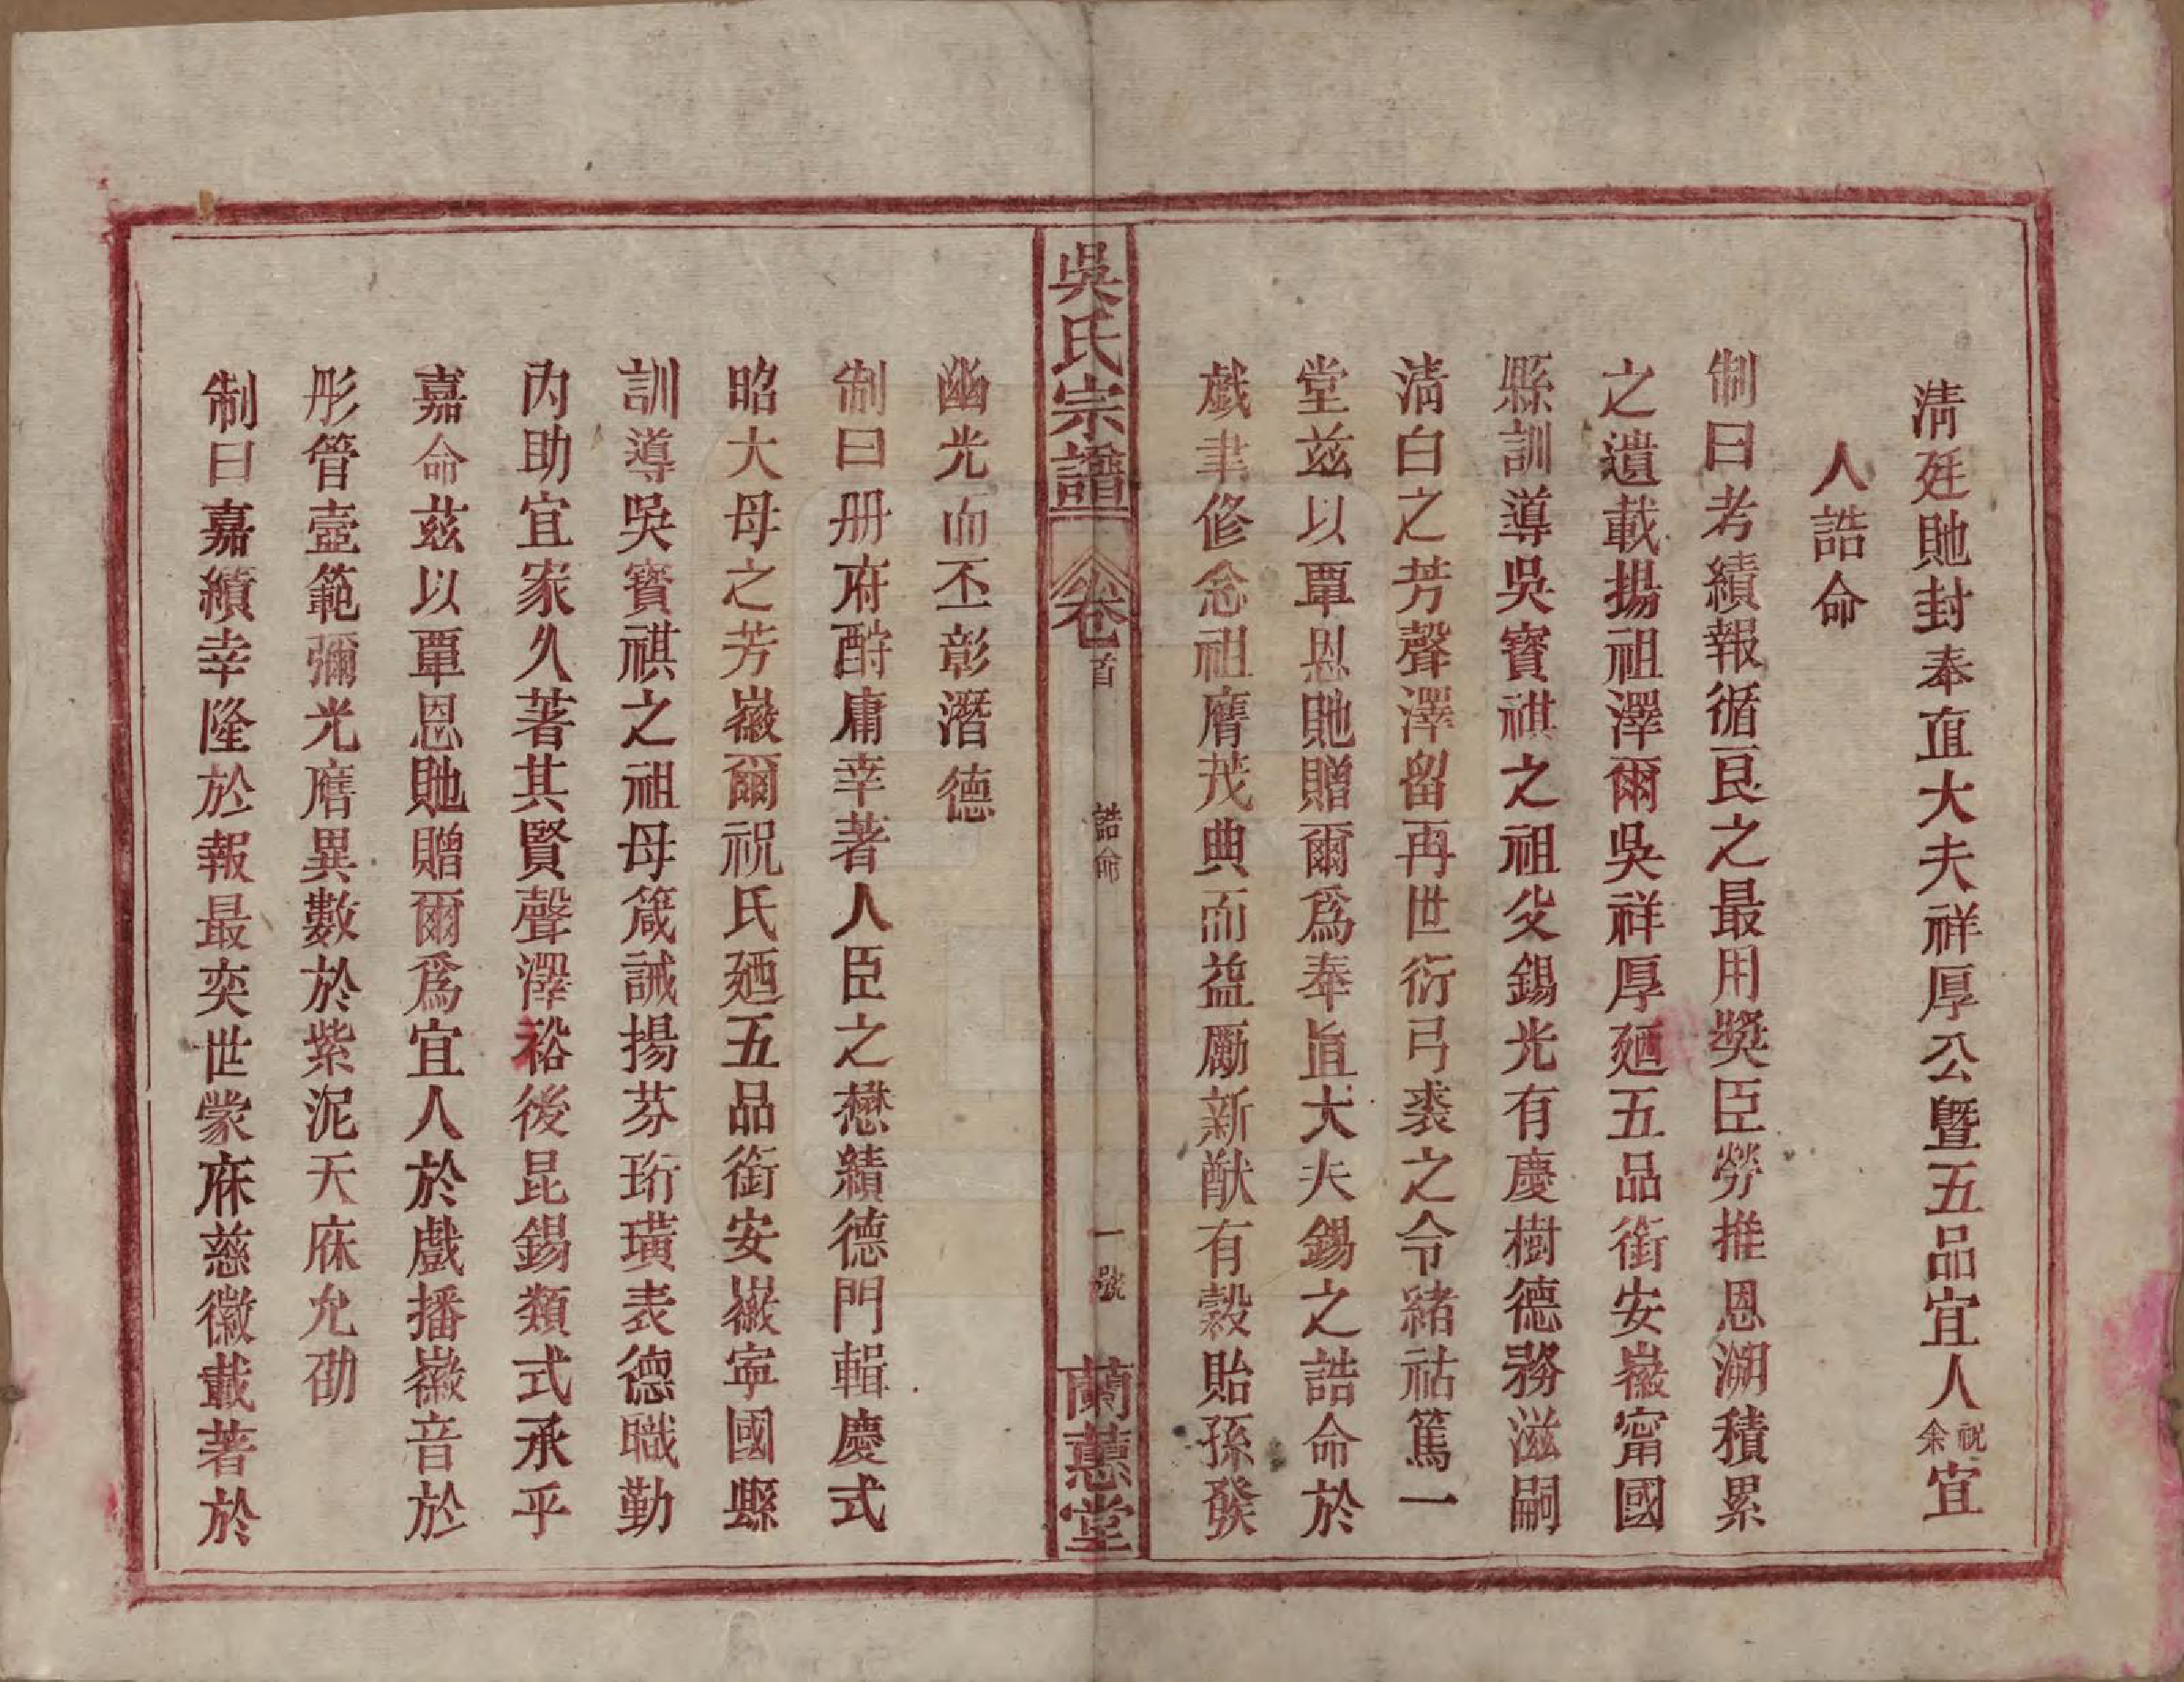 清廷貤封奉直大夫祥厚公曁五品宜人祝余宜
人誥命
制曰考績報循良之最用獎臣勞推恩溯積累
之遺載揚祖澤爾吳祥厚廼五品銜安徽甯國
縣訓導吳寶祺之祖父錫光有慶樹德務滋嗣
清白之芳聲澤留再世衍弓裘之令緒祜篤一
堂茲以覃恩貤贈爾爲奉直大夫錫之誥命於
戯聿修念祖膺茂典而益勵新猷有穀貽孫發
吳氏宗譜 卷首 誥命 一號 蘭蕙堂
幽光而丕彰潛德
制曰册府酧庸幸著人臣之懋績德門輯慶式
昭大母之芳徽爾祝氏廼五品銜安徽寜國縣
訓導吳寶祺之祖母箴誡揚芬珩璜表德職勤
內助宜家久著其賢聲澤裕後昆錫類式承乎
嘉命茲以覃恩貤贈爾爲宜人於戲播徽音於
彤管壼範彌光膺異數於紫泥天庥允劭
制曰嘉績幸隆於報最奕世蒙庥慈徽載著於